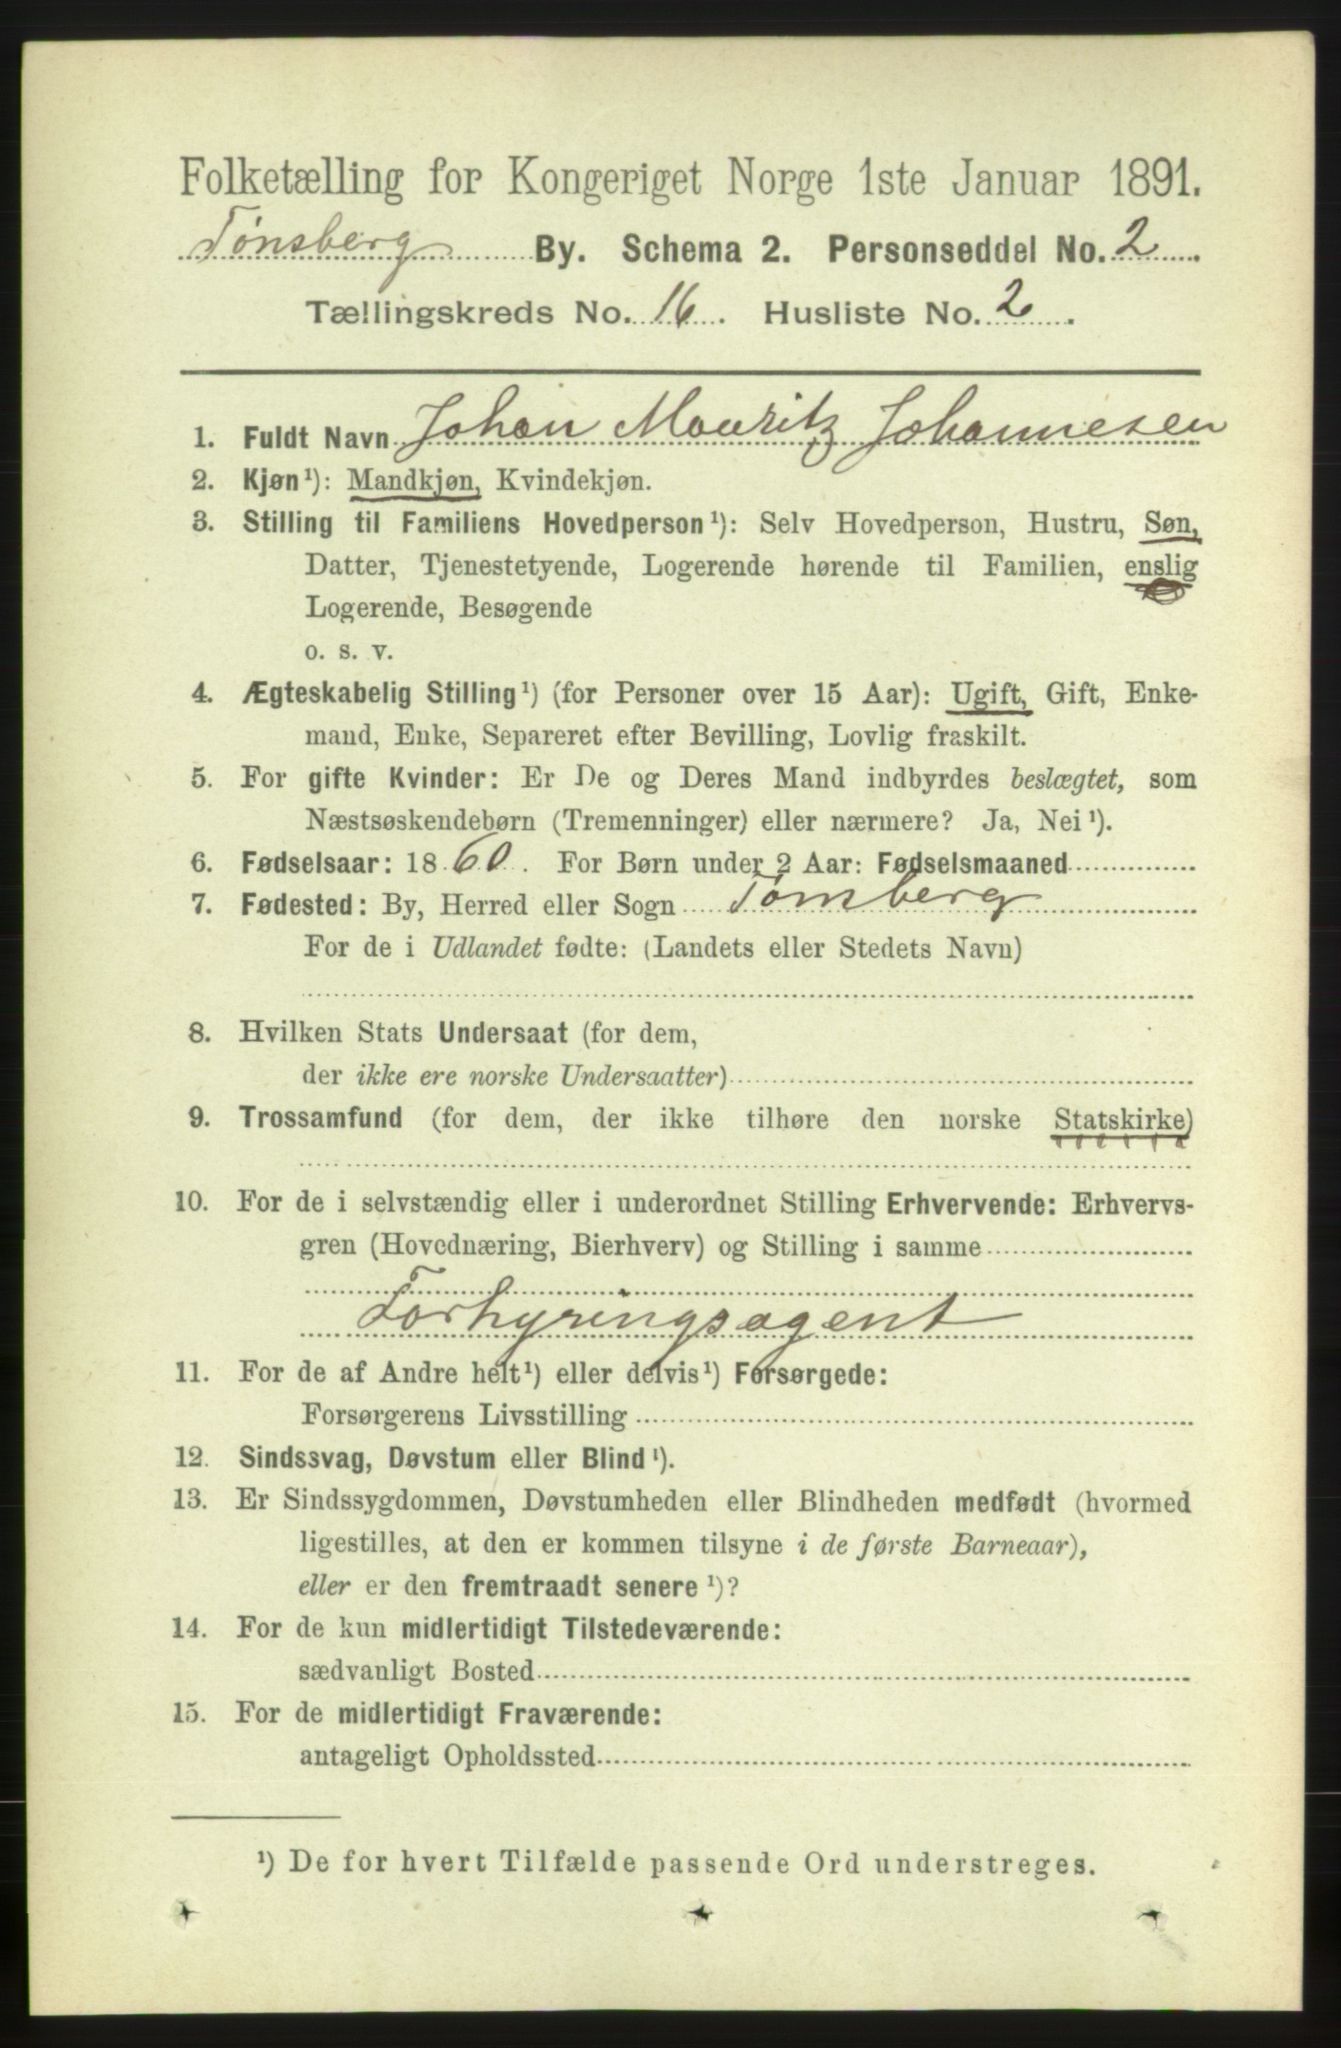 Folketælling for Kongeriget Norge 1ste Januar 1891.
Tønsberg By. Schema 2. Personseddel No. 2
Tællingskreds No. 16. Husliste No. 2.
1. Fuldt Navn Johan Mouritz Johannesen
2. Kjøn¹): Mandkjøn, Kvindekjøn.
3. Stilling til Familiens Hovedperson¹): Selv Hovedperson, Hustru, Søn,
Datter, Tjenestetyende, Logerende hørende til Familien, enslig
Logerende, Besøgende
o. s. v.
4. Ægteskabelig Stilling¹) (for Personer over 15 Aar): Ugift, Gift, Enke-
mand, Enke, Separeret efter Bevilling, Lovlig fraskilt.
5. For gifte Kvinder: Er De og Deres Mand indbyrdes beslægtet, som
Næstsøskendebørn (Tremenninger) eller nærmere? Ja, Nei¹).
6. Fødselsaar: 1860. For Børn under 2 Aar: Fødselsmaaned
7. Fødested: By, Herred eller Sogn Tømberg
For de i Udlandet fødte: (Landets eller Stedets Navn)
8. Hvilken Stats Undersaat (for dem,
der ikke ere norske Undersaatter)
9. Trossamfund (for dem, der ikke tilhøre den norske Statskirke)
10. For de i selvstændig eller i underordnet Stilling Erhvervende: Erhvervs-
gren (Hovednæring, Bierhverv) og Stilling i samme
Forhyringsagent
11. For de af Andre helt¹) eller delvis¹) Forsørgede:
Forsørgerens Livsstilling
12. Sindssvag, Døvstum eller Blind¹).
13. Er Sindssygdommen, Døvstumheden eller Blindheden medfødt (hvormed
ligestilles, at den er kommen tilsyne i de første Barneaar),
eller er den fremtraadt senere¹)?
14. For de kun midlertidigt Tilstedeværende:
sædvanligt Bosted
15. For de midlertidigt Fraværende:
antageligt Opholdssted
¹) De for hvert Tilfælde passende Ord understreges.